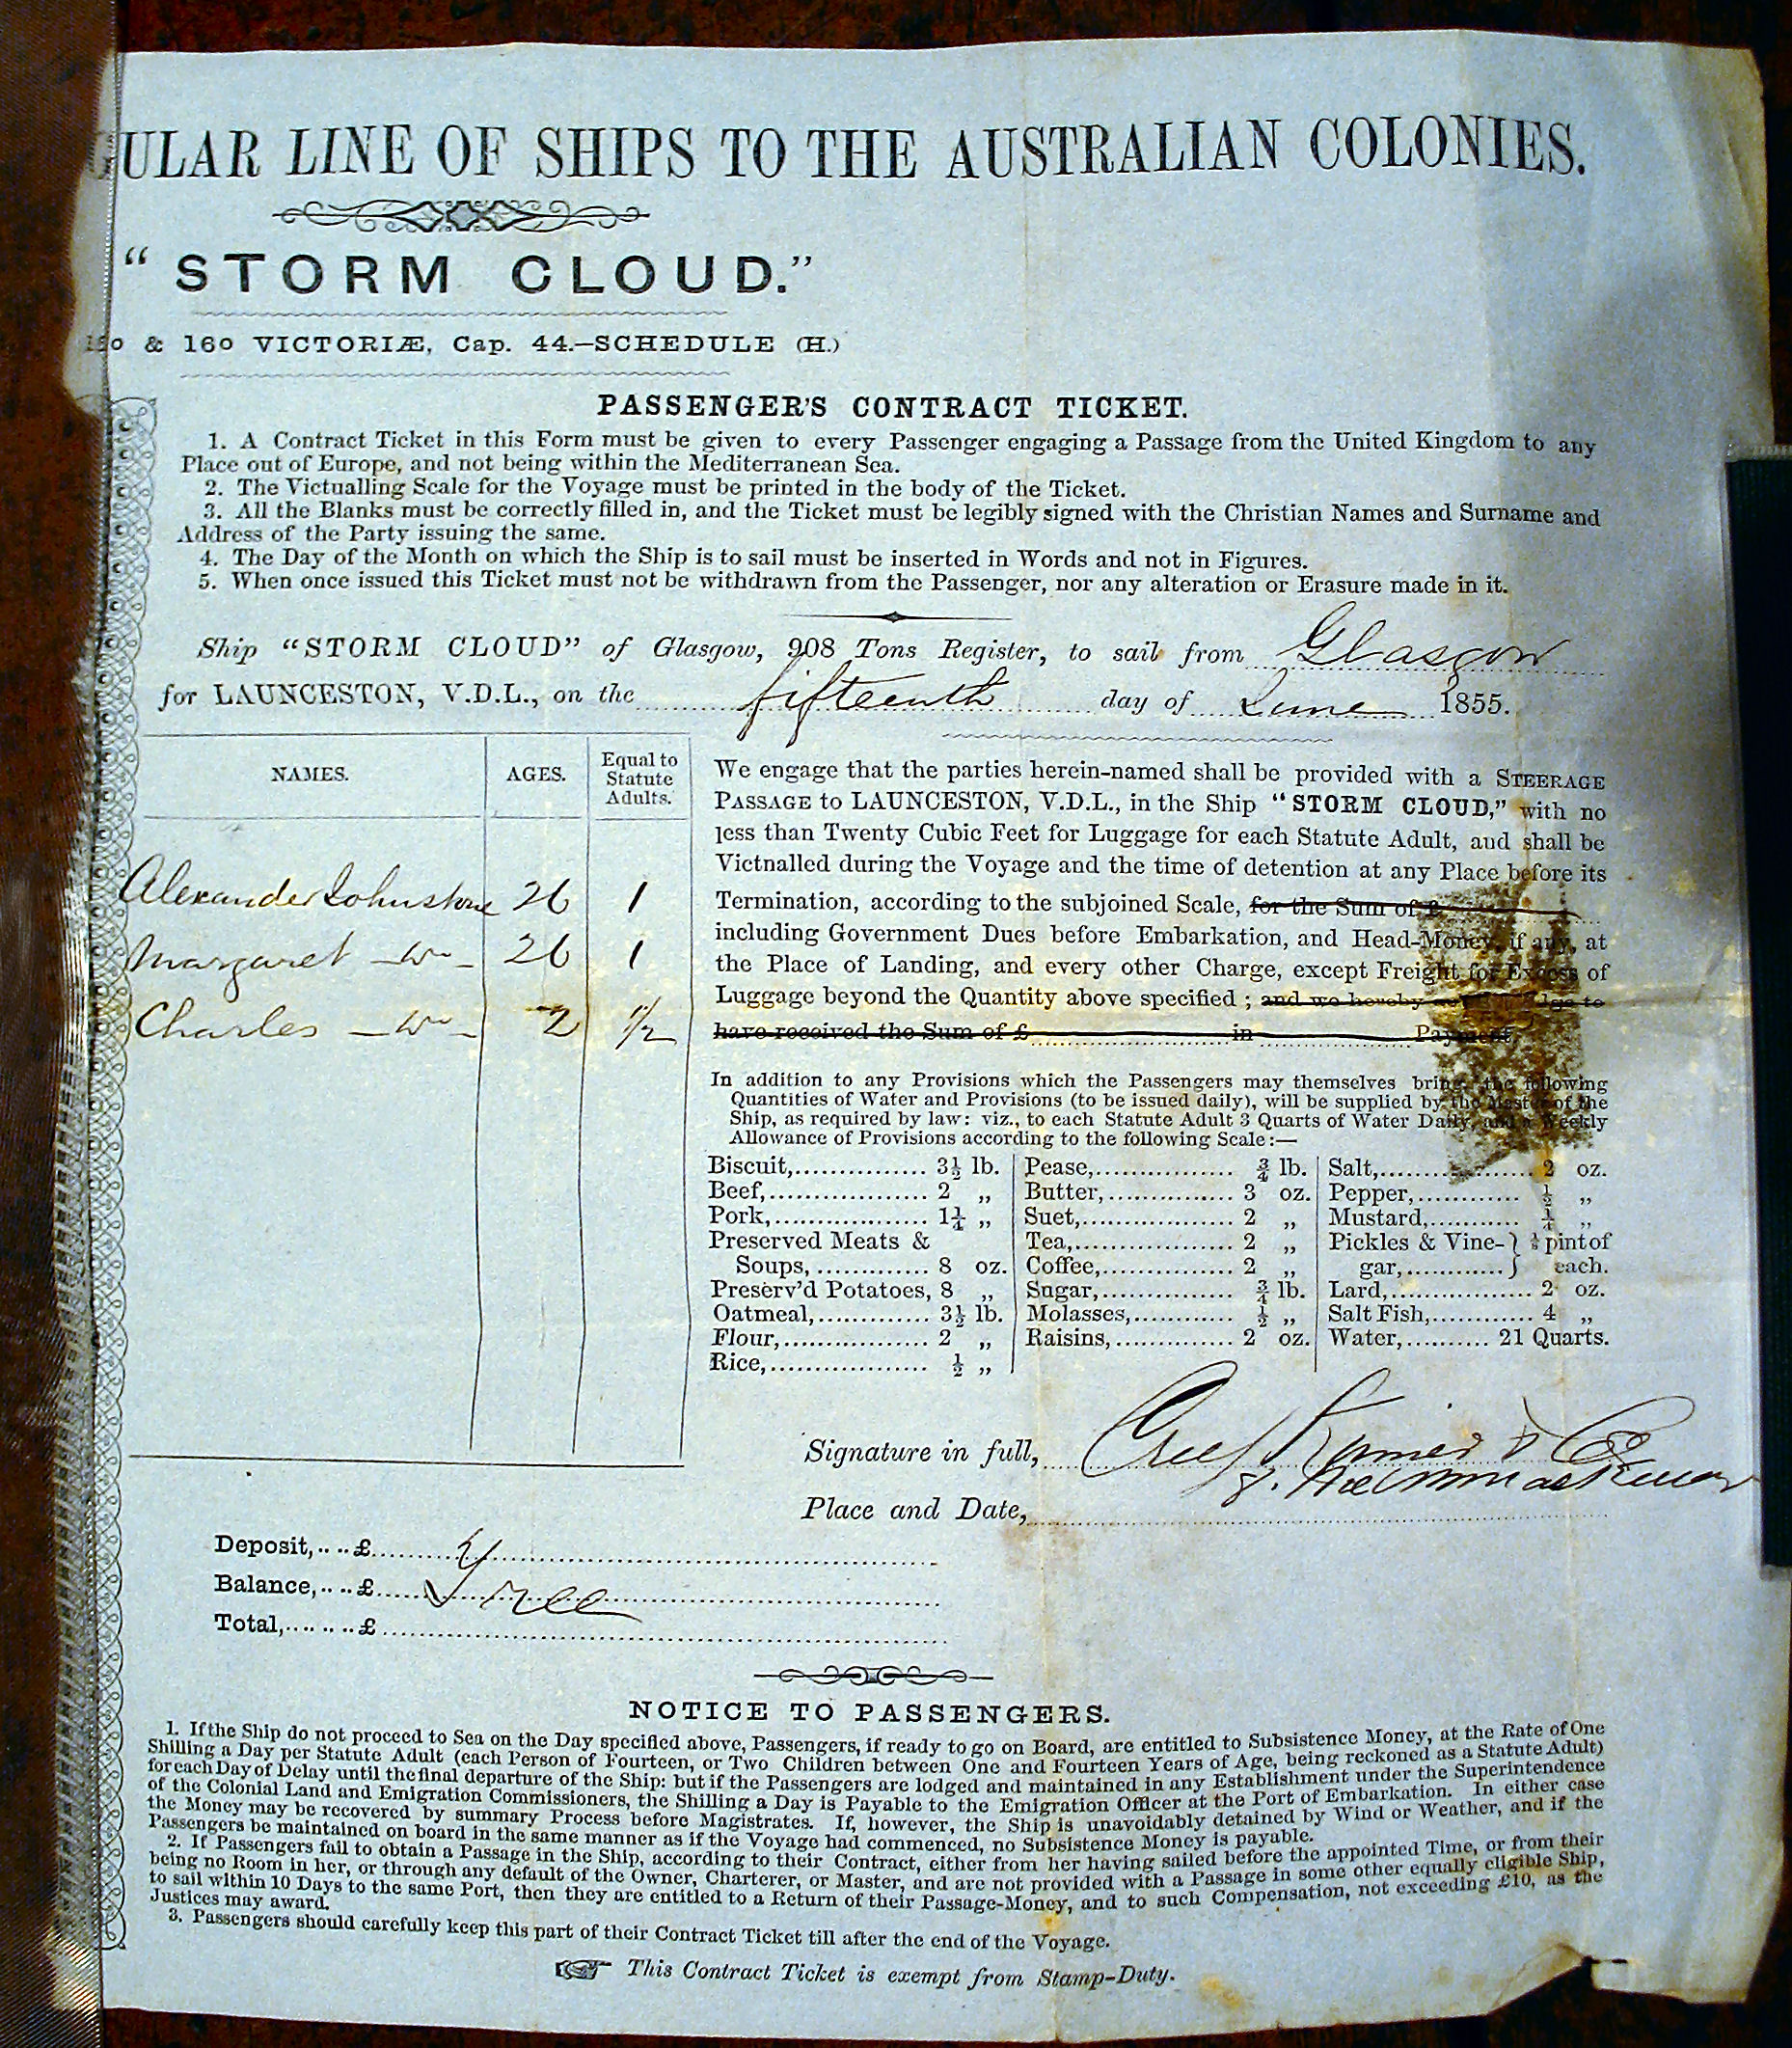 GULAR LINE OF SHIPS TO THE AUSTRALIAN COLONIES.
"STORM CLOUD."
15o & 16o VICTORIÆ, Cap. 44.—SCHEDULE (H.)
PASSENGER'S CONTRACT TICKET.
1. A Contract Ticket in this Form must be given to every Passenger engaging a Passage from the United Kingdom to any
Place out of Europe, and not being within the Mediterranean Sea.
2. The Victualling Scale for the Voyage must be printed in the body of the Ticket.
3. All the Blanks must be correctly filled in, and the Ticket must be legibly signed with the Christian Names and Surname and
Address of the Party issuing the same.
4. The Day of the Month on which the Ship is to sail must be inserted in Words and not in Figures.
5. When once issued this Ticket must not be withdrawn from the Passenger, nor any alteration or Erasure made in it.
Ship "STORM CLOUD" of Glasgow, 908 Tons Register, to sail from Glasgow
for LAUNCESTON, V.D.L., on the fifteenth day of June 1855.
NAMES. AGES. Equal to Statute Adults.
Alexander Johnstone 26 1
Margaret 26 1
Charles 2 1/2
We engage that the parties herein-named shall be provided with a STEERAGE
PASSAGE to LAUNCESTON, V.D.L., in the Ship "STORM CLOUD," with no
less than Twenty Cubic Feet for Luggage for each Statute Adult, and shall be
Victnalled during the Voyage and the time of detention at any Place before its
Termination, according to the subjoined Scale, for the Sum of £
including Government Dues before Embarkation, and Head-Money, if any, at
the Place of Landing, and every other Charge, except Freight for Excess of
Luggage beyond the Quantity above specified ; and we hereby acknowledge to
have received the Sum of £ in Payment
In addition to any Provisions which the Passengers may themselves bring, the following
Quantities of Water and Provisions (to be issued daily), will be supplied by the Master of the
Ship, as required by law: viz., to each Statute Adult 3 Quarts of Water Daily, and a Weekly
Allowance of Provisions according to the following Scale:—
Biscuit, 3½ lb.
Beef, 2 „
Pork, 1¼ „
Preserved Meats &
Soups, 8 oz.
Preserv'd Potatoes, 8 „
Oatmeal, 3½ lb.
Flour, 2 „
Rice, ½ „
Pease, ¾ lb.
Butter, 3 oz.
Suet, 2 „
Tea, 2 „
Coffee, 2 „
Sugar, ¾ lb.
Molasses, ½ „
Raisins, 2 oz.
Salt, 2 oz.
Pepper, ½ „
Mustard, ¼ „
Pickles & Vine- } pint of
gar, } each.
Lard, 2 oz.
Salt Fish, 4 „
Water, 21 Quarts.
Signature in full,
Place and Date,
Deposit, £
Balance, £ Free
Total, £
NOTICE TO PASSENGERS.
1. If the Ship do not proceed to Sea on the Day specified above, Passengers, if ready to go on Board, are entitled to Subsistence Money, at the Rate of One
Shilling a Day per Statute Adult (each Person of Fourteen, or Two Children between One and Fourteen Years of Age, being reckoned as a Statute Adult)
for each Day of Delay until the final departure of the Ship: but if the Passengers are lodged and maintained in any Establishment under the Superintendence
of the Colonial Land and Emigration Commissioners, the Shilling a Day is Payable to the Emigration Officer at the Port of Embarkation. In either case
the Money may be recovered by summary Process before Magistrates. If, however, the Ship is unavoidably detained by Wind or Weather, and if the
Passengers be maintained on board in the same manner as if the Voyage had commenced, no Subsistence Money is payable.
2. If Passengers fail to obtain a Passage in the Ship, according to their Contract, either from her having sailed before the appointed Time, or from their
being no Room in her, or through any default of the Owner, Charterer, or Master, and are not provided with a Passage in some other equally eligible Ship,
to sail within 10 Days to the same Port, then they are entitled to a Return of their Passage-Money, and to such Compensation, not exceeding £10, as the
Justices may award.
3. Passengers should carefully keep this part of their Contract Ticket till after the end of the Voyage.
This Contract Ticket is exempt from Stamp-Duty.